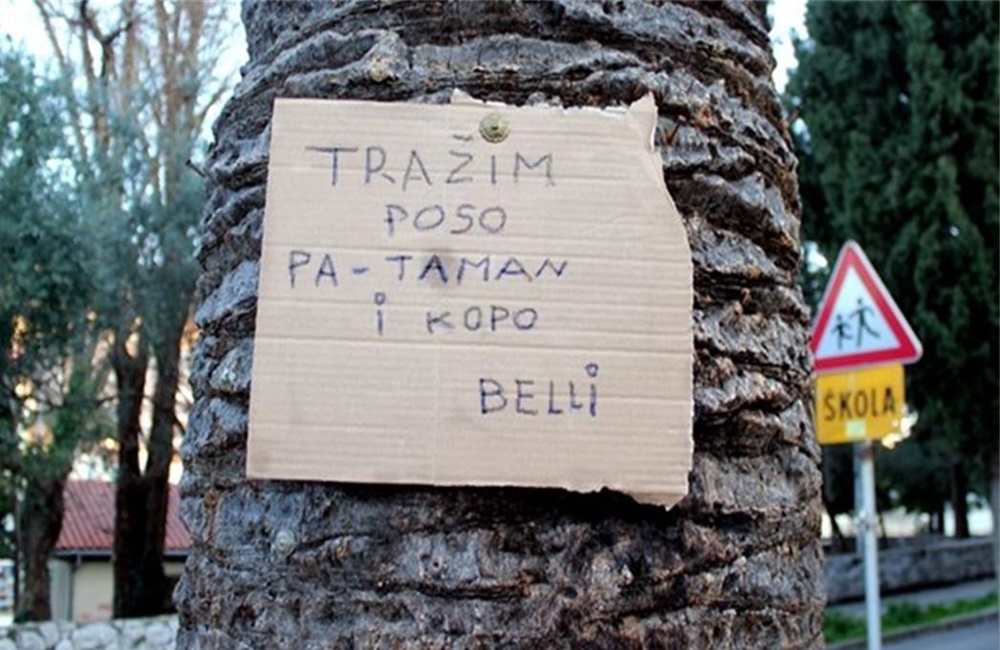 TRAŽIM
POSO
PA-TAMAN
i KOPO
BELLi
ŠKOLA